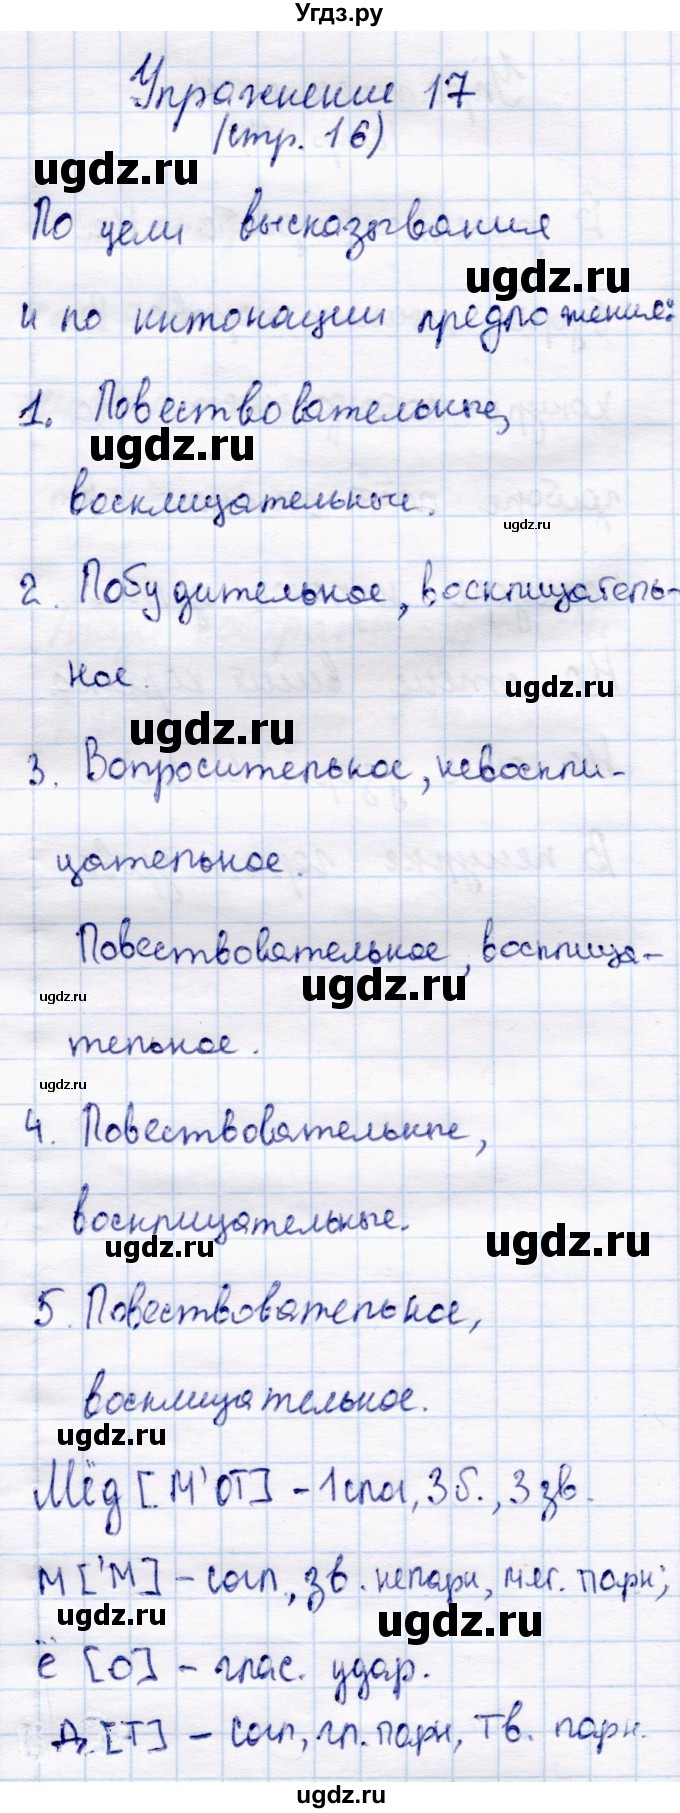 Угдз.ру
Упражнение 17
(стр. 16)
ugdz.ru
По цели высказывания
ugdz.ru
и по интонации предложения:
1. Повествовательные,
ugdz.ru
восклицательные.
ugdz.ru
2. Побудительное, восклицатель-
ное.
ugdz.ru
ugdz.ru
3. Вопросительное, невоскли-
цательное.
Повествовательное, восклица-
ugdz.ru
ugdz.ru
тельное.
ugdz.ru
4. Повествовательные,
восклицательные.
ugdz.ru
ugdz.ru
5. Повествовательное,
восклицательное.
ugdz.ru
Мёд [М'ОТ] - 1 слог, 3 б., 3 зв.
м ['М] - согл., зв. непарн, мяг. парн;
ugdz.ru
ugdz.ru
ё [О] - глас. удар.
д [Т] - согл, гл. парн, тв. парн.
ugdz.ru